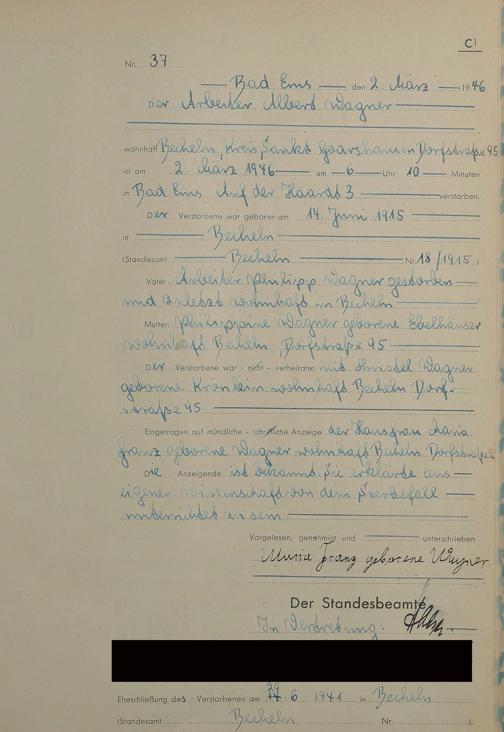 C1
Nr. 37
Bad Ems den 2. März 1946
Der Arbeiter Albert Wagner
wohnhaft Becheln, Kreis Sankt Goarshausen Dorfstraße 95
ist am 2. März 1946 um 6 Uhr 10 Minuten
in Bad Ems Auf der Haardt 3 verstorben.
Der Verstorbene war geboren am 14. Juni 1915
in Becheln
(Standesamt Becheln Nr. 18/1915)
Vater: Arbeiter Philipp Wagner gestorben
und zuletzt wohnhaft in Becheln
Mutter: Philippine Wagner geborene Ebelhäuser
wohnhaft Becheln, Dorfstraße 95
Der Verstorbene war - nicht - verheiratet mit Wagner
geborene wohnhaft Becheln Dorf-
straße 95
Eingetragen auf mündliche - schriftliche Anzeige der Hausfrau Maria
Franz geborene Wagner wohnhaft Becheln Dorfstraße
Die Anzeigende ist bekannt. Sie erklärte aus
eigener Wissenschaft von dem Sterbefall
unterrichtet zu sein
Vorgelesen, genehmigt und unterschrieben
Maria Franz geborene Wagner
Der Standesbeamte
In Vertretung:
Eheschließung des Verstorbenen am 6 1941 in Becheln
(Standesamt Becheln Nr. )